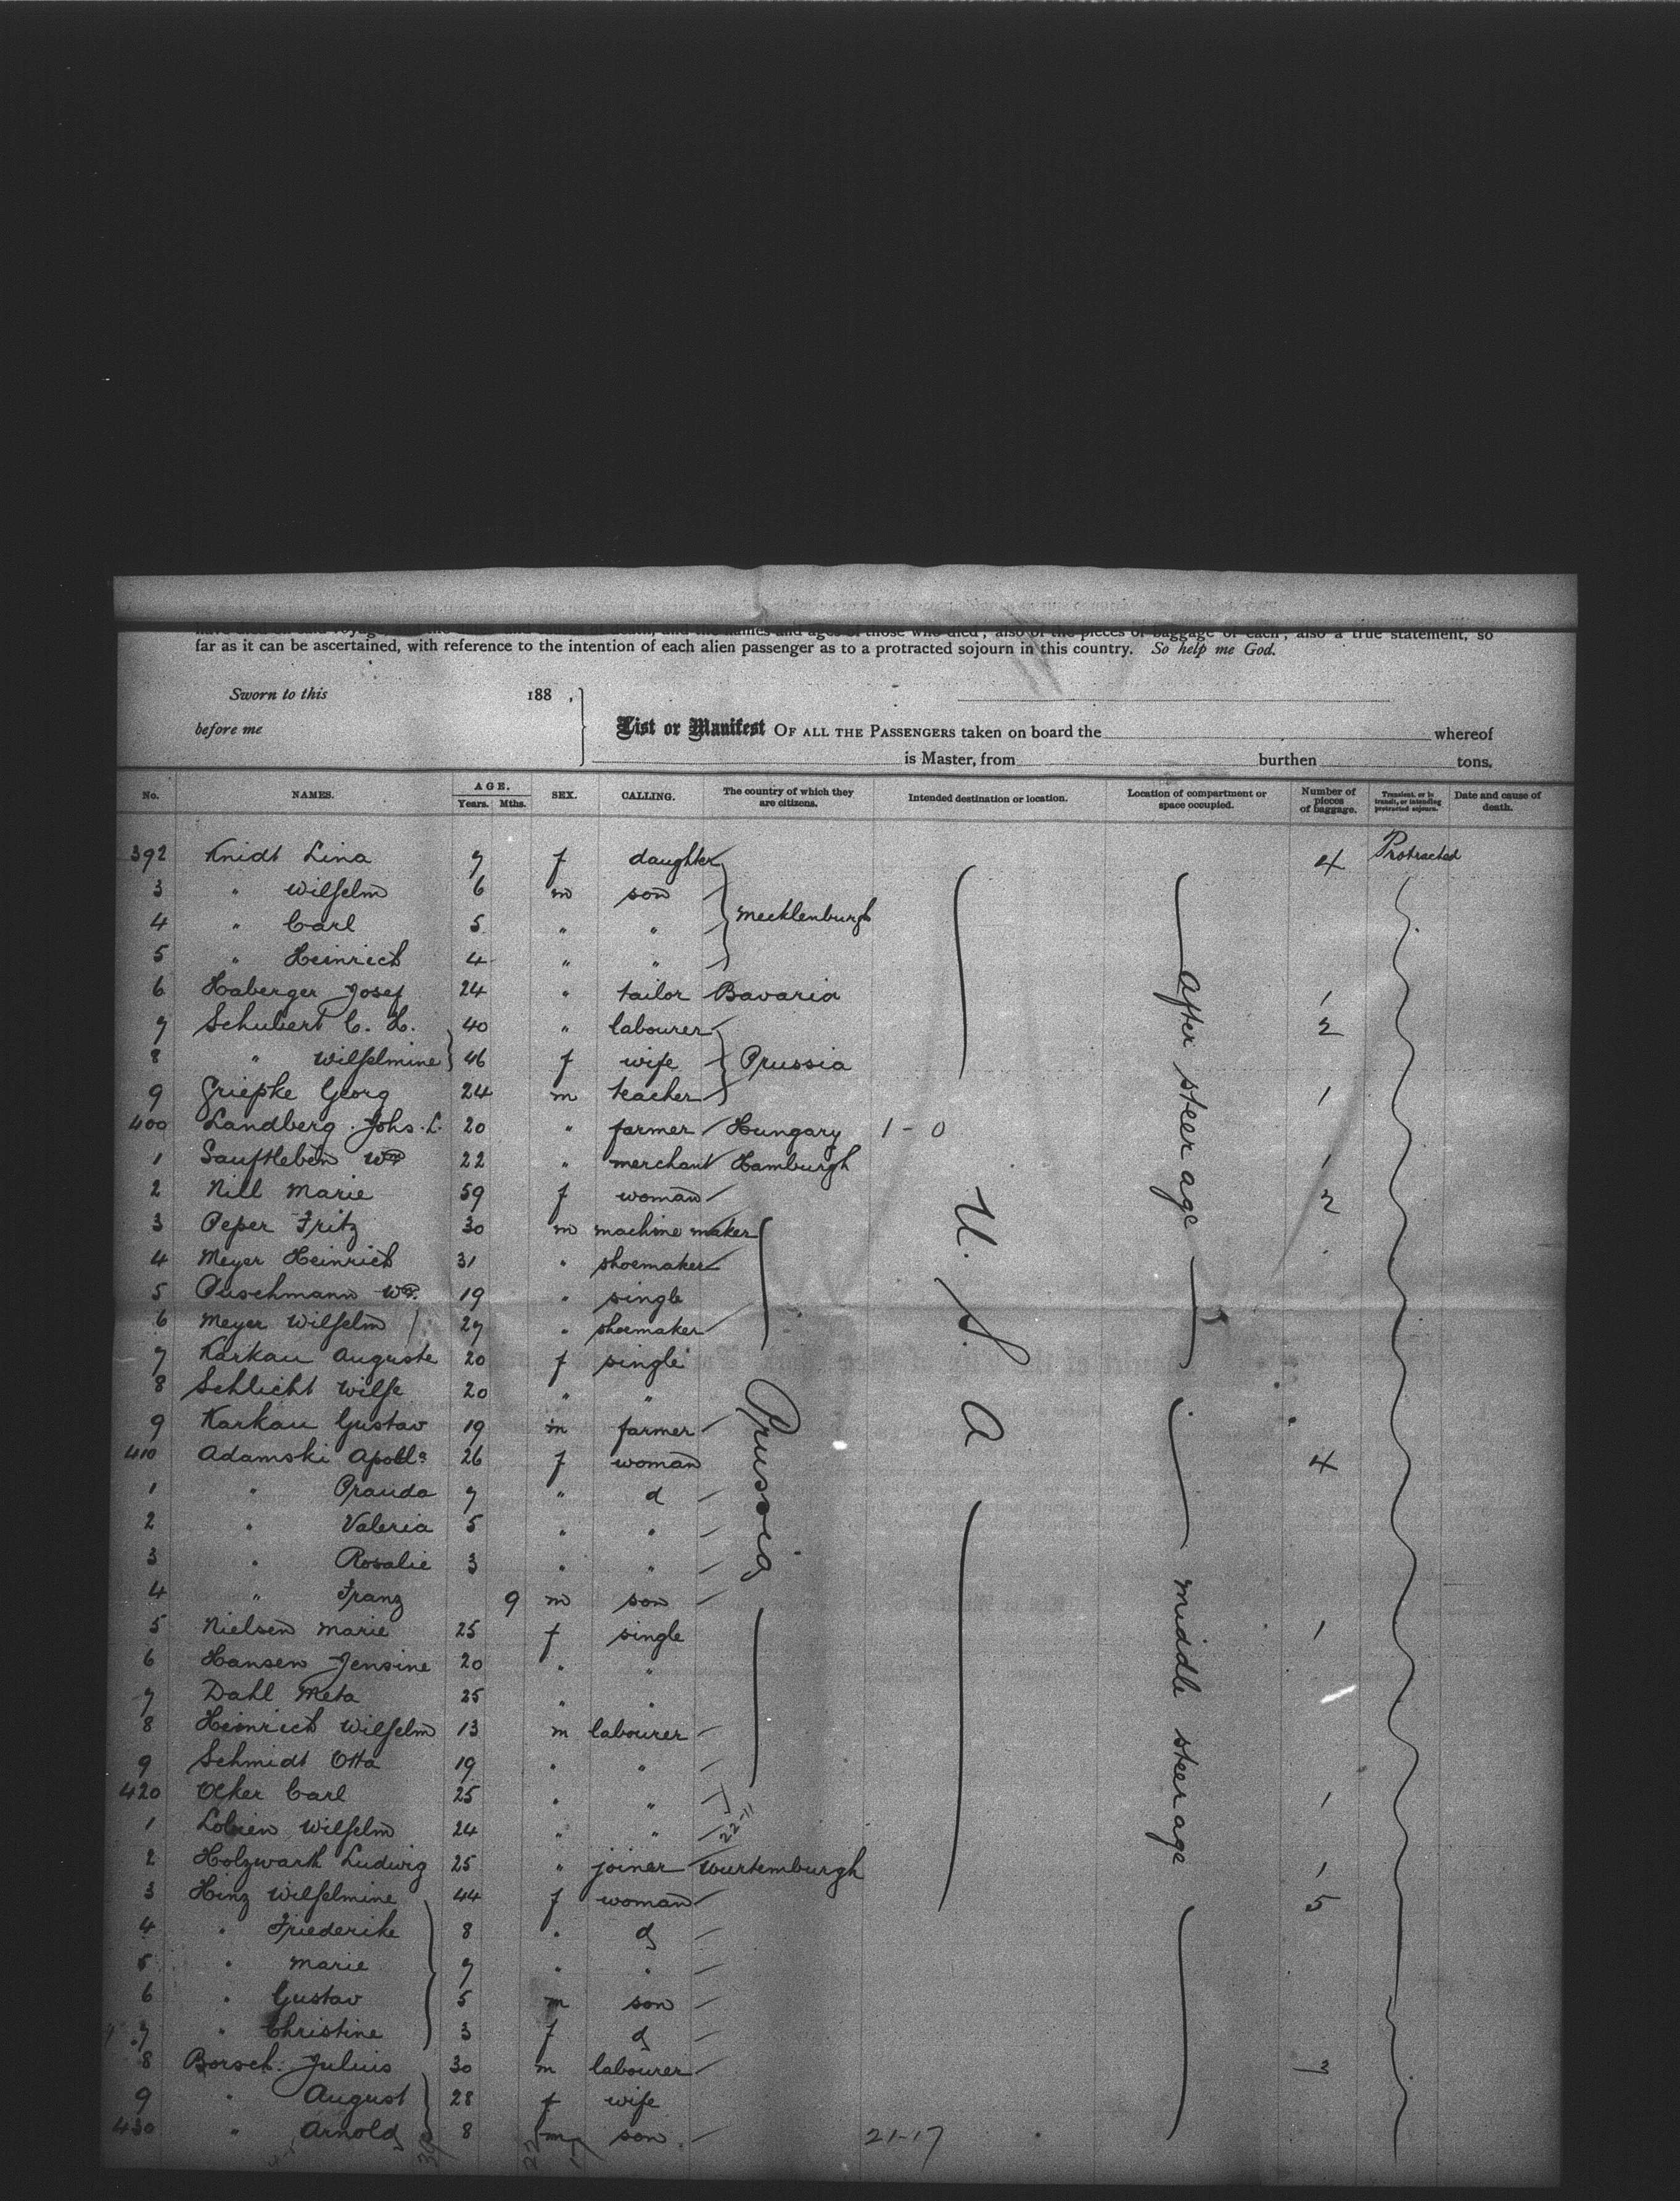 far as it can be ascertained, with reference to the intention of each alien passenger as to a protracted sojourn in this country. So help me God.
Sworn to this 188 ,
before me
List or Manifest OF ALL THE PASSENGERS taken on board the whereof
is Master, from burthen tons.
No. NAMES. AGE. Years. Mths. SEX. CALLING. The country of which they are citizens. Intended destination or location. Location of compartment or space occupied. Number of pieces of baggage. Transient, or in transit, or intending protracted sojourn. Date and cause of death.
392 Knidt Lina 7 f daughter 4 Protracted
3 " Wilhelm 6 m son
4 " Carl 5 " " Mecklenburgh
5 " Heinrich 4 " "
6 Haberger Josef 24 " tailor Bavaria 1
7 Schubert C. H. 40 " labourer 2
8 " Wilhelmine 46 f wife Prussia
9 Griepke Georg 24 m teacher 1
400 Landberg Johs. L. 20 " farmer Hungary 1-0
1 Sauftleben Wm 22 " merchant Hamburgh 1
2 Nill Marie 59 f woman 2
3 Peper Fritz 30 m machine maker
4 Meyer Heinrich 31 " shoemaker
5 Puschmann Wm 19 " single
6 Meyer Wilhelm 27 " shoemaker
7 Karkau Auguste 20 f single
8 Schlicht Wilhe 20 " "
9 Karkau Gustav 19 m farmer
410 Adamski Apolla 26 f woman 4
1 " Prauda 7 " d
2 " Valeria 5 " "
3 " Rosalie 3 " "
4 " Franz 9 m son
5 Nielsen Marie 25 f single 1
6 Hansen Jensine 20 " "
7 Dahl Meta 25 " "
8 Heinrich Wilhelm 13 m labourer
9 Schmidt Otto 19 " "
420 Olker Carl 25 " " 1
1 Lobien Wilhelm 24 " " 22-11
2 Holzwarth Ludwig 25 " joiner Wurtemburgh 1
3 Hinz Wilhelmine 44 f woman 5
4 " Friederike 8 " d
5 " Marie 7 " "
6 " Gustav 5 m son
7 " Christine 3 f d
8 Borsch Julius 30 m labourer 3
9 " August 28 f wife
430 " Arnold 8 m son 21-17
Prussia
U. S. A
After steerage
middle steerage